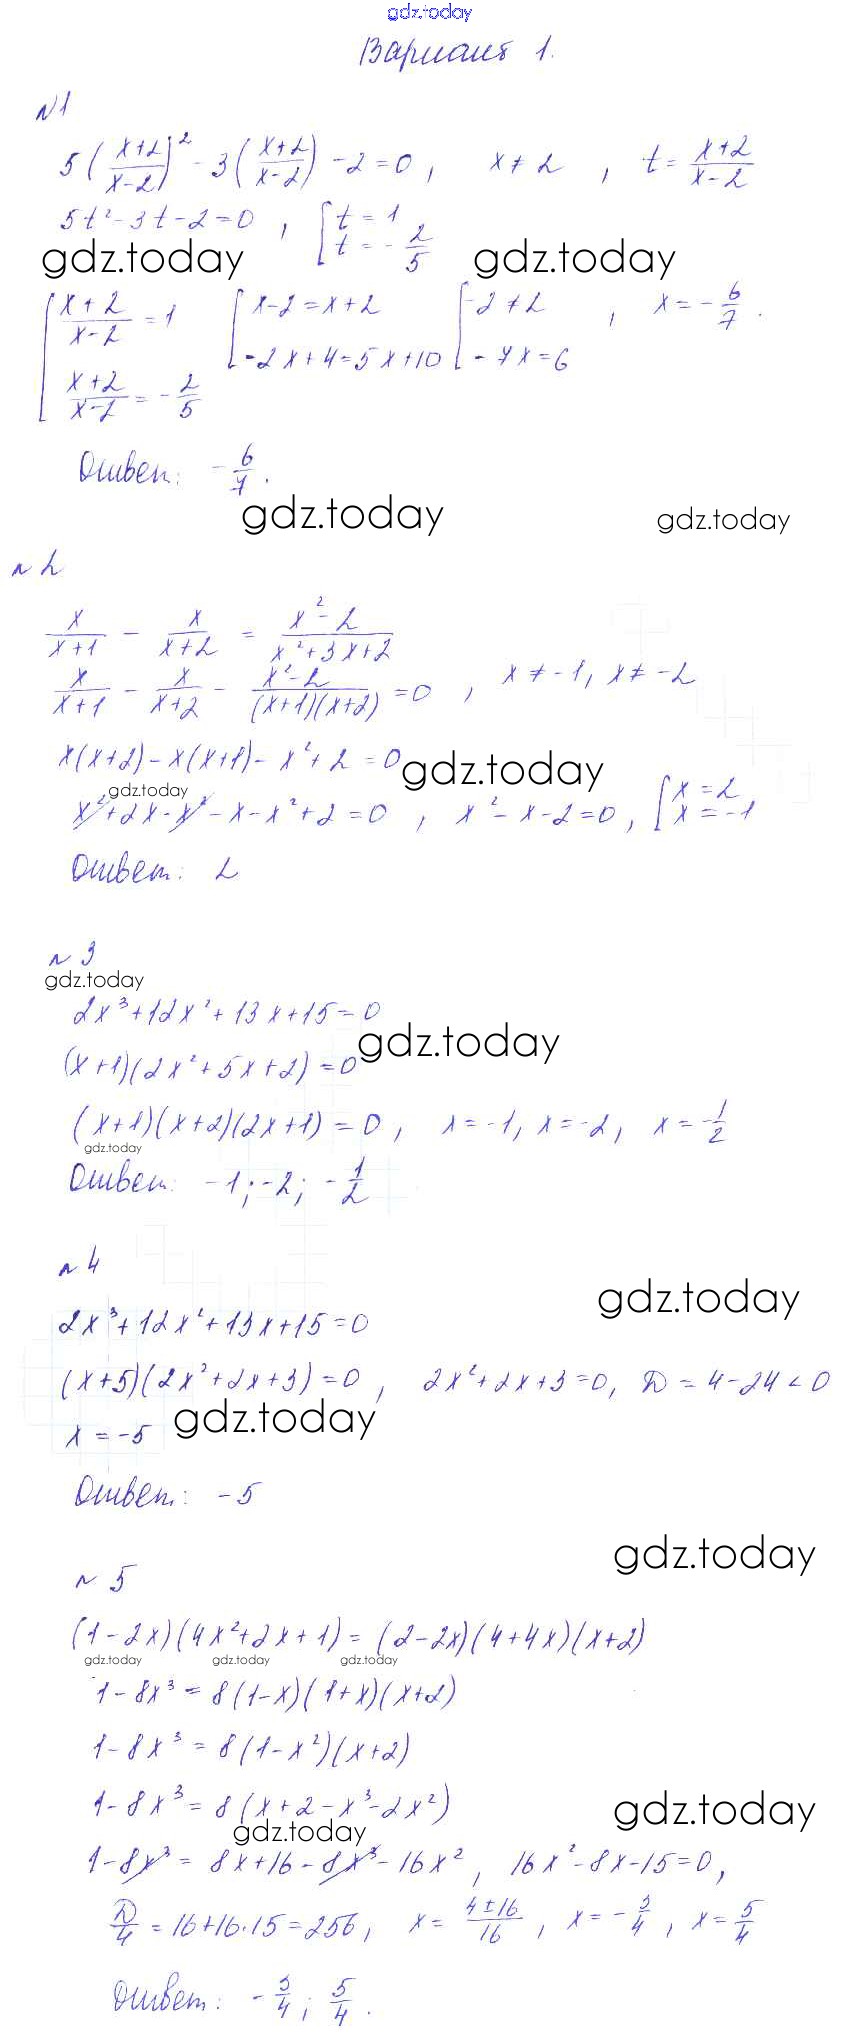 gdz.today
Вариант 1.
№1
5((x+2)/(x-2))² - 3((x+2)/(x-2)) - 2 = 0, x ≠ 2, t = (x+2)/(x-2)
5t² - 3t - 2 = 0, [t = 1
t = -2/5
gdz.today gdz.today
[(x+2)/(x-2) = 1 [x-2 = x+2 [-2 ≠ 2, x = -6/7.
(x+2)/(x-2) = -2/5 -2x+4 = 5x+10 -7x = 6
Ответ: -6/7.
gdz.today gdz.today
№2
x/(x+1) - x/(x+2) = (x²-2)/(x²+3x+2)
x/(x+1) - x/(x+2) - (x²-2)/((x+1)(x+2)) = 0, x ≠ -1, x ≠ -2
x(x+2) - x(x+1) - x² + 2 = 0
gdz.today
gdz.today
x² + 2x - x² - x - x² + 2 = 0, x² - x - 2 = 0, [x = 2
x = -1
Ответ: 2
№3
gdz.today
2x³ + 12x² + 13x + 15 = 0
gdz.today
(x+1)(2x²+5x+2) = 0
(x+1)(x+2)(2x+1) = 0, x = -1, x = -2, x = -1/2
gdz.today
Ответ: -1; -2; -1/2
№4
gdz.today
2x³ + 12x² + 13x + 15 = 0
(x+5)(2x²+2x+3) = 0, 2x²+2x+3 = 0, D = 4-24 < 0
gdz.today
x = -5
Ответ: -5
gdz.today
№5
(1-2x)(4x²+2x+1) = (2-2x)(4+4x)(x+2)
gdz.today gdz.today gdz.today
1-8x³ = 8(1-x)(1+x)(x+2)
1-8x³ = 8(1-x²)(x+2)
1-8x³ = 8(x+2-x³-2x²)
gdz.today
gdz.today
1-8x³ = 8x+16-8x³-16x², 16x²-8x-15 = 0,
D/4 = 16+16·15 = 256, x = (4±16)/16, x = -3/4, x = 5/4
Ответ: -3/4; 5/4.